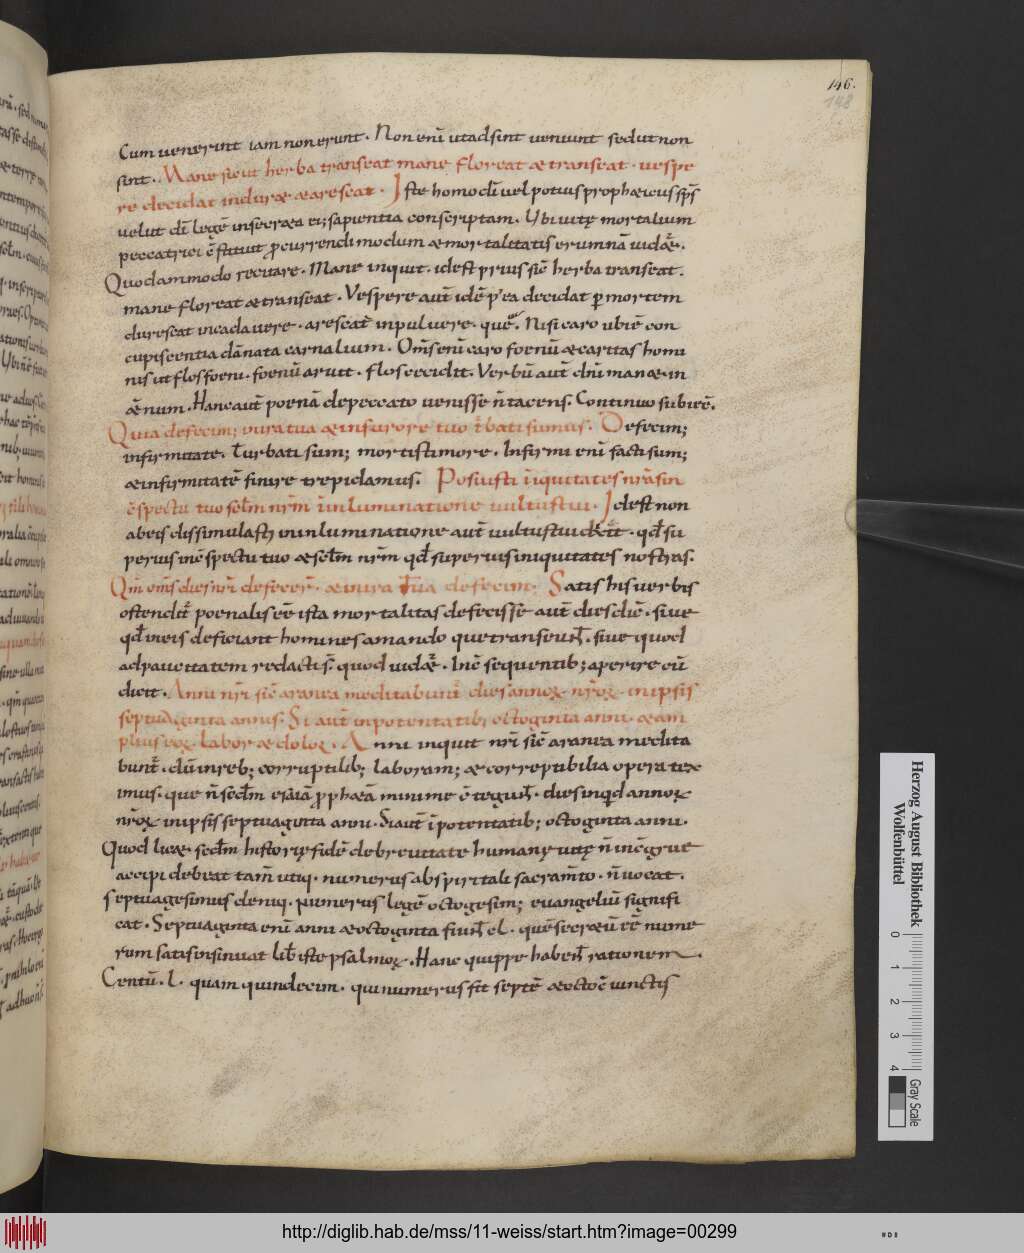 146.
148
Cum uenerint iam non erunt. Non enī utadsint ueniunt sedut non
sint. Mane sicut herba transeat mane floreat æ transeat. uespe
re decidat induræ æ arescat. Iste homo dī uel potius prophæicus sp̄s
uelut dī legē inseræa ei; sapientia conscriptam. Ubi uitę mortalium
peccatrici ē statuit procurrendi modum æ mortalitatis erumnā uidǣ.
Quodammodo recitare. Mane inquit. idest prius sic̄ herba transeat.
mane floreat æ transeat. Vespere aut̄ idē p'ea decidat p̄ mortem
durescat incadauere. arescat in puluere. que. Nisi caro ubiē con
cupiscentia dānata carnalium. Om̄s enī caro foenū æ caritas homi
nis ut flos foeni. foenū aruit. flos cecidit. Verbū aut̄ dn̄i manæ in
ǣnum. Hanc aut̄ poenā de peccato uenisse n̄ tacens. Continuo subiec̄.
Quia defecim; inira tua æ infurore tuo t̄bati sumus. Defecim;
infirmitate. turbati sum; mortis timore. Infirmi enī facti sum;
æ infirmitatē finire trepidamus. Posuisti īiquitates nr̄as in
c̄spectu tuo sel̄m nr̄m īinluminatione uultus tui. Idest non
ab eis dissimulasti ininluminatione aut̄ uultus tui dicit. qd̄ su
perius inc̄spectu tuo æ sel̄m nr̄m qd̄ superius iniquitates nostras.
Qm̄ om̄s dies nr̄i defecer̄. æ inira tua defecim. Satis his uerbis
ostendit̄ poenalis eē ista mortalitas defecissē aut̄ dies dic̄. siue
qd̄ ineis deficiant homines amando que transeun̄t. siue quod
adpaucitatem redacti s̄. quod uidǣ. Inc̄ sequentib; aperire cū
dicit. Anni nr̄i sic̄ aranea meditabunt̄ dies annoꝝ nr̄oꝝ in ipsis
septuaginta annis. Si aut̄ in potentatib; octoginta anni. æ am
plius eoꝝ. labor æ doloꝝ. Anni inquit nr̄i sic̄ aranea medita
bunt̄. dū inreb; corruptilib; laboram; æ correptibilia opera tex
imus. que n̄ secd̄m esaiā p̄phæā minime c̄tegun̄t. dies inq̄d annoꝝ
nr̄oꝝ in ipsis septuaginta anni. Si aut̄ īpotentatib; octoginta anni.
Quod licæ. secd̄m historię fidē de breuitate humanę uitę n̄ inc̄grue
accipi debeat tam̄ utiq. numerus ab spiritali sacram̄to. n̄ uocat.
septuagesimus deniq. numerus legē octogesim; euangeliū signifi
cat. Septuaginta enī anni æ octoginta fiun̄t cl. quē secræū eē nume
rum satis insinuat lib̄ iste psalmoꝝ. Hanc quippe haben̄t rationem.
Centū. L. quam quindecim. qui numerus fit septē æ octoc̄ iunctis
Herzog August Bibliothek
Wolfenbüttel
0 1 2 3 4
Gray Scale
http://diglib.hab.de/mss/11-weiss/start.htm?image=00299